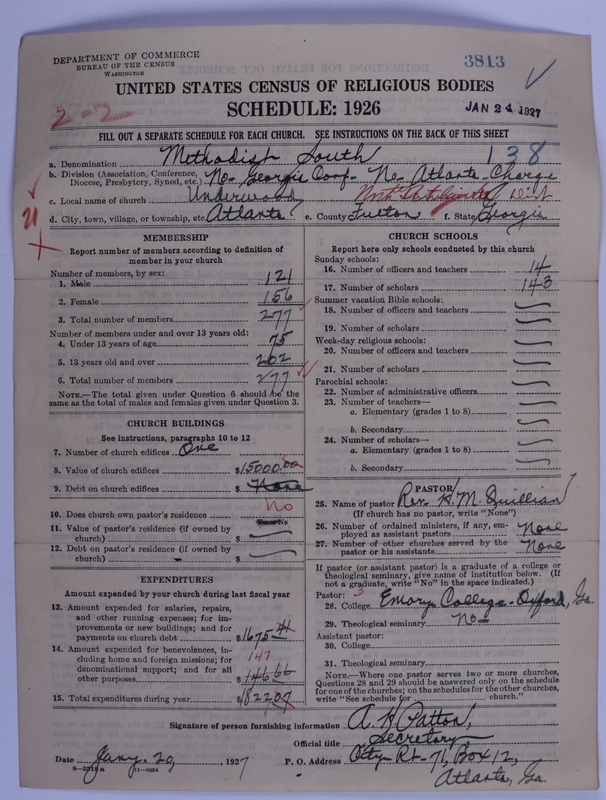 DEPARTMENT OF COMMERCE
BUREAU OF THE CENSUS
WASHINGTON
3813
UNITED STATES CENSUS OF RELIGIOUS BODIES
2-2
SCHEDULE: 1926
JAN 24 1927
FILL OUT A SEPARATE SCHEDULE FOR EACH CHURCH. SEE INSTRUCTIONS ON THE BACK OF THIS SHEET
a. Denomination Methodist South 138
b. Division (Association, Conference, Diocese, Presbytery, Synod, etc.) No. Georgia Conf- No. Atlanta Charge
c. Local name of church Underwood
d. City, town, village, or township, etc. Atlanta e. County Fulton f. State Georgia
21
MEMBERSHIP
Report number of members according to definition of
member in your church
Number of members, by sex:
1. Male 121
2. Female 156
3. Total number of members 277
Number of members under and over 13 years old:
4. Under 13 years of age 75
5. 13 years old and over 202
6. Total number of members 277
NOTE.—The total given under Question 6 should be the
same as the total of males and females given under Question 3.
CHURCH BUILDINGS
See instructions, paragraphs 10 to 12
7. Number of church edifices One
8. Value of church edifices $15000.00
9. Debt on church edifices $ None
10. Does church own pastor's residence No
No
11. Value of pastor's residence (if owned by
church) $
12. Debt on pastor's residence (if owned by
church) $
EXPENDITURES
Amount expended by your church during last fiscal year
13. Amount expended for salaries, repairs,
and other running expenses; for im-
provements or new buildings; and for
payments on church debt $1675
14. Amount expended for benevolences, in-
cluding home and foreign missions; for
denominational support; and for all
other purposes $146.66
147
15. Total expenditures during year $1822.07
CHURCH SCHOOLS
Report here only schools conducted by this church
Sunday schools:
16. Number of officers and teachers 14
17. Number of scholars 143
Summer vacation Bible schools:
18. Number of officers and teachers
19. Number of scholars
Week-day religious schools:
20. Number of officers and teachers
21. Number of scholars
Parochial schools:
22. Number of administrative officers
23. Number of teachers—
a. Elementary (grades 1 to 8)
b. Secondary
24. Number of scholars—
a. Elementary (grades 1 to 8)
b. Secondary
PASTOR
25. Name of pastor Rev. H. M. Quillian
(If church has no pastor, write "None")
26. Number of ordained ministers, if any, em-
ployed as assistant pastors None
27. Number of other churches served by the
pastor or his assistants None
If pastor (or assistant pastor) is a graduate of a college or
theological seminary, give name of institution below. (If
not a graduate, write "No" in the space indicated.)
Pastor: 3
28. College Emory College- Oxford, Ga.
29. Theological seminary No
Assistant pastor:
30. College
31. Theological seminary
NOTE.—Where one pastor serves two or more churches,
Questions 28 and 29 should be answered only on the schedule
for one of the churches; on the schedules for the other churches,
write "See schedule for church."
Signature of person furnishing information A. H. Patton,
Official title Secretary
Date Jany. 20, 1927 P. O. Address City Rt-71, Box 12,
Atlanta, Ga.
8—5218a 11—9084